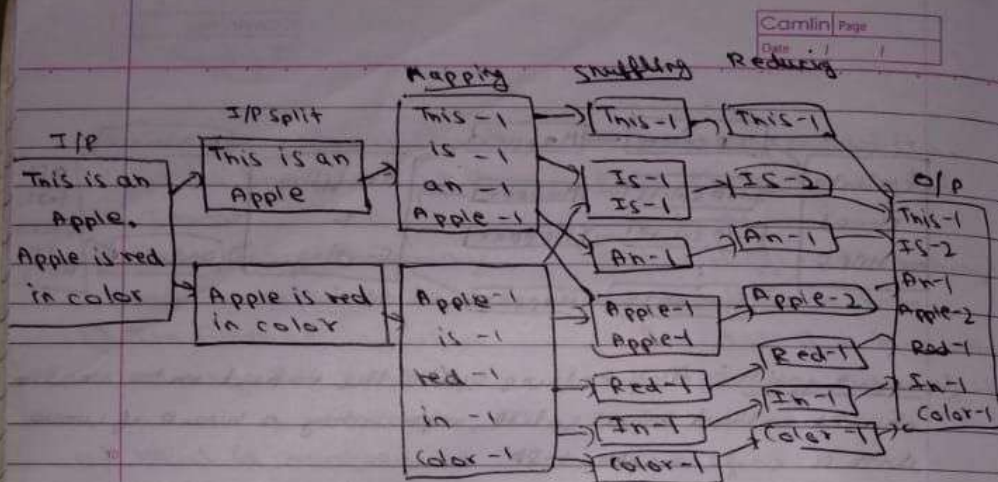 Camlin Page
Date / /
Mapping
Snuffling
Reducing
I/P
I/P Split
This is an
Apple.
Apple is red
in color
This is an
Apple
Apple is red
in color
This - 1
is - 1
an - 1
Apple - 1
Apple - 1
is - 1
red - 1
in - 1
Color - 1
This - 1
Is - 1
Is - 1
An - 1
Apple - 1
Apple - 1
Red - 1
In - 1
Color - 1
This - 1
Is - 2
An - 1
Apple - 2
Red - 1
In - 1
Color - 1
O/P
This - 1
Is - 2
An - 1
Apple - 2
Red - 1
In - 1
Color - 1